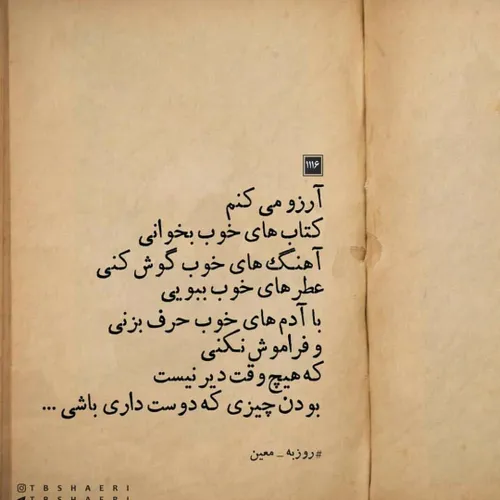 ۱۱۱۶
آرزو می کنم
کتاب های خوب بخوانی
آهنگ های خوب گوش کنی
عطر های خوب ببویی
با آدم های خوب حرف بزنی
و فراموش نکنی
که هیچ وقت دیر نیست
بودن چیزی که دوست داری باشی ...
#روزبه_معین
TBSHAERI
TBSHAERI